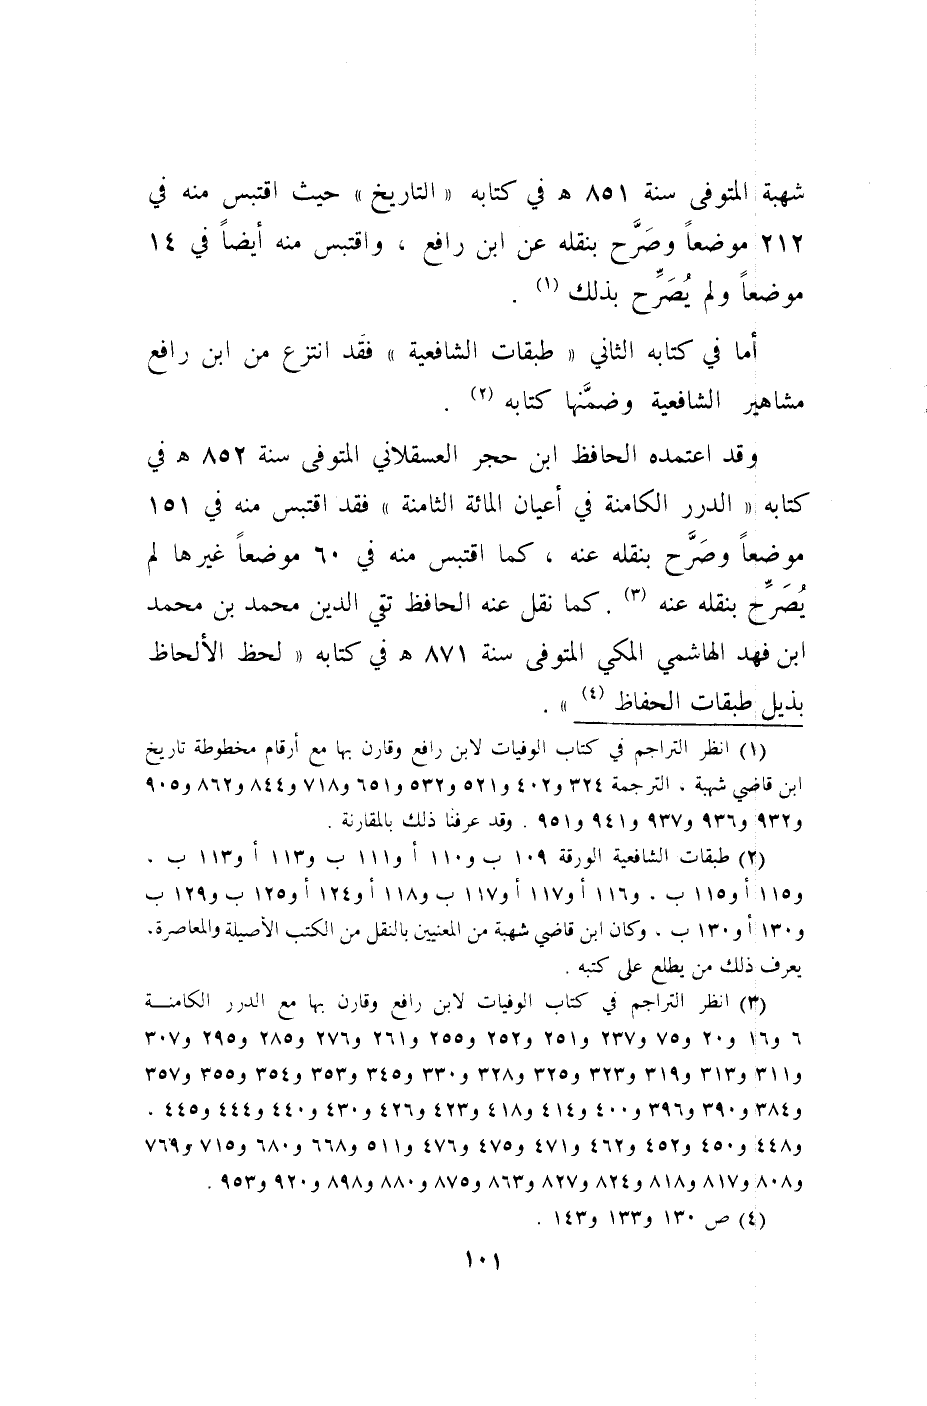 شهبة المتوفى سنة ٨٥١ هـ في كتابه « التاريخ » حيث اقتبس منه في
٢١٢ موضعاً وصَرَّح بنقله عن ابن رافع ، واقتبس منه أيضاً في ١٤
موضعاً ولم يُصَرِّح بذلك (١) .
أما في كتابه الثاني « طبقات الشافعية » فقَد انتزع من ابن رافع
مشاهير الشافعية وضمَّنها كتابه (٢) .
وقد اعتمده الحافظ ابن حجر العسقلاني المتوفى سنة ٨٥٢ هـ في
كتابه « الدرر الكامنة في أعيان المائة الثامنة » فقد اقتبس منه في ١٥١
موضعاً وصَرَّح بنقله عنه ، كما اقتبس منه في ٦٠ موضعاً غيرها لم
يُصَرِّح بنقله عنه (٣) . كما نقل عنه الحافظ تقي الدين محمد بن محمد
ابن فهد الهاشمي المكي المتوفى سنة ٨٧١ هـ في كتابه « لحظ الألحاظ
بذيل طبقات الحفاظ (٤) » .
(١) انظر التراجم في كتاب الوفيات لابن رافع وقارن بها مع أرقام مخطوطة تاريخ
ابن قاضي شهبة ، الترجمة ٣٢٤ و٤٠٢ و٥٢١ و٥٣٢ و٦٥١ و٧١٨ و٨٤٤ و٨٦٢ و٩٠٥
و٩٣٢ و٩٣٦ و٩٣٧ و٩٤١ و٩٥١ . وقد عرفنا ذلك بالمقارنة .
(٢) طبقات الشافعية الورقة ١٠٩ ب و١١٠ أ و١١١ ب و١١٣ أ و١١٣ ب .
و١١٥ أ و١١٥ ب . و١١٦ أ و١١٧ أ و١١٧ ب و١١٨ أ و١٢٤ أ و١٢٥ ب و١٢٩ ب
و١٣٠ أ و١٣٠ ب . وكان ابن قاضي شهبة من المعنيين بالنقل من الكتب الأصيلة والمعاصرة،
يعرف ذلك من يطلع على كتبه .
(٣) انظر التراجم في كتاب الوفيات لابن رافع وقارن بها مع الدرر الكامنة
٦ و١٦ و٢٠ و٧٥ و٢٣٧ و٢٥١ و٢٥٢ و٢٥٥ و٢٦١ و٢٧٦ و٢٨٥ و٢٩٥ و٣٠٧
و٣١١ و٣١٣ و٣١٩ و٣٢٣ و٣٢٥ و٣٢٨ و٣٣٠ و٣٤٥ و٣٥٣ و٣٥٤ و٣٥٥ و٣٥٧
و٣٨٤ و٣٩٠ و٣٩٦ و٤٠٠ و٤١٤ و٤١٨ و٤٢٣ و٤٢٦ و٤٣٠ و٤٤٠ و٤٤٤ و٤٤٥ .
و٤٤٨ و٤٥٠ و٤٥٢ و٤٦٢ و٤٧١ و٤٧٥ و٤٧٦ و٥١١ و٦٦٨ و٦٨٠ و٧١٥ و٧٦٩
و٨٠٨ و٨١٧ و٨١٨ و٨٢٤ و٨٢٧ و٨٦٣ و٨٧٥ و٨٨٠ و٨٩٨ و٩٢٠ و٩٥٣ .
(٤) ص ١٣٠ و١٣٣ و١٤٣ .
١٠١